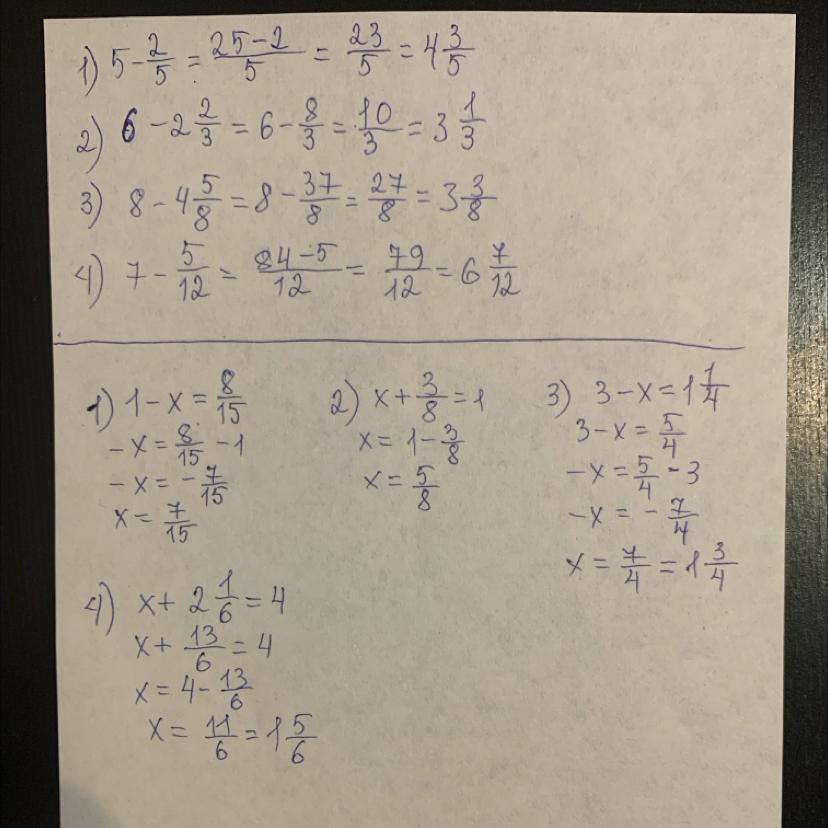 1) 5 - 2/5 = (25-2)/5 = 23/5 = 4 3/5
2) 6 - 2 2/3 = 6 - 8/3 = 10/3 = 3 1/3
3) 8 - 4 5/8 = 8 - 37/8 = 27/8 = 3 3/8
4) 7 - 5/12 = (84-5)/12 = 79/12 = 6 7/12
1) 1 - x = 8/15
-x = 8/15 - 1
-x = - 7/15
x = 7/15
2) x + 3/8 = 1
x = 1 - 3/8
x = 5/8
3) 3 - x = 1 1/4
3 - x = 5/4
-x = 5/4 - 3
-x = - 7/4
x = 7/4 = 1 3/4
4) x + 2 1/6 = 4
x + 13/6 = 4
x = 4 - 13/6
x = 11/6 = 1 5/6